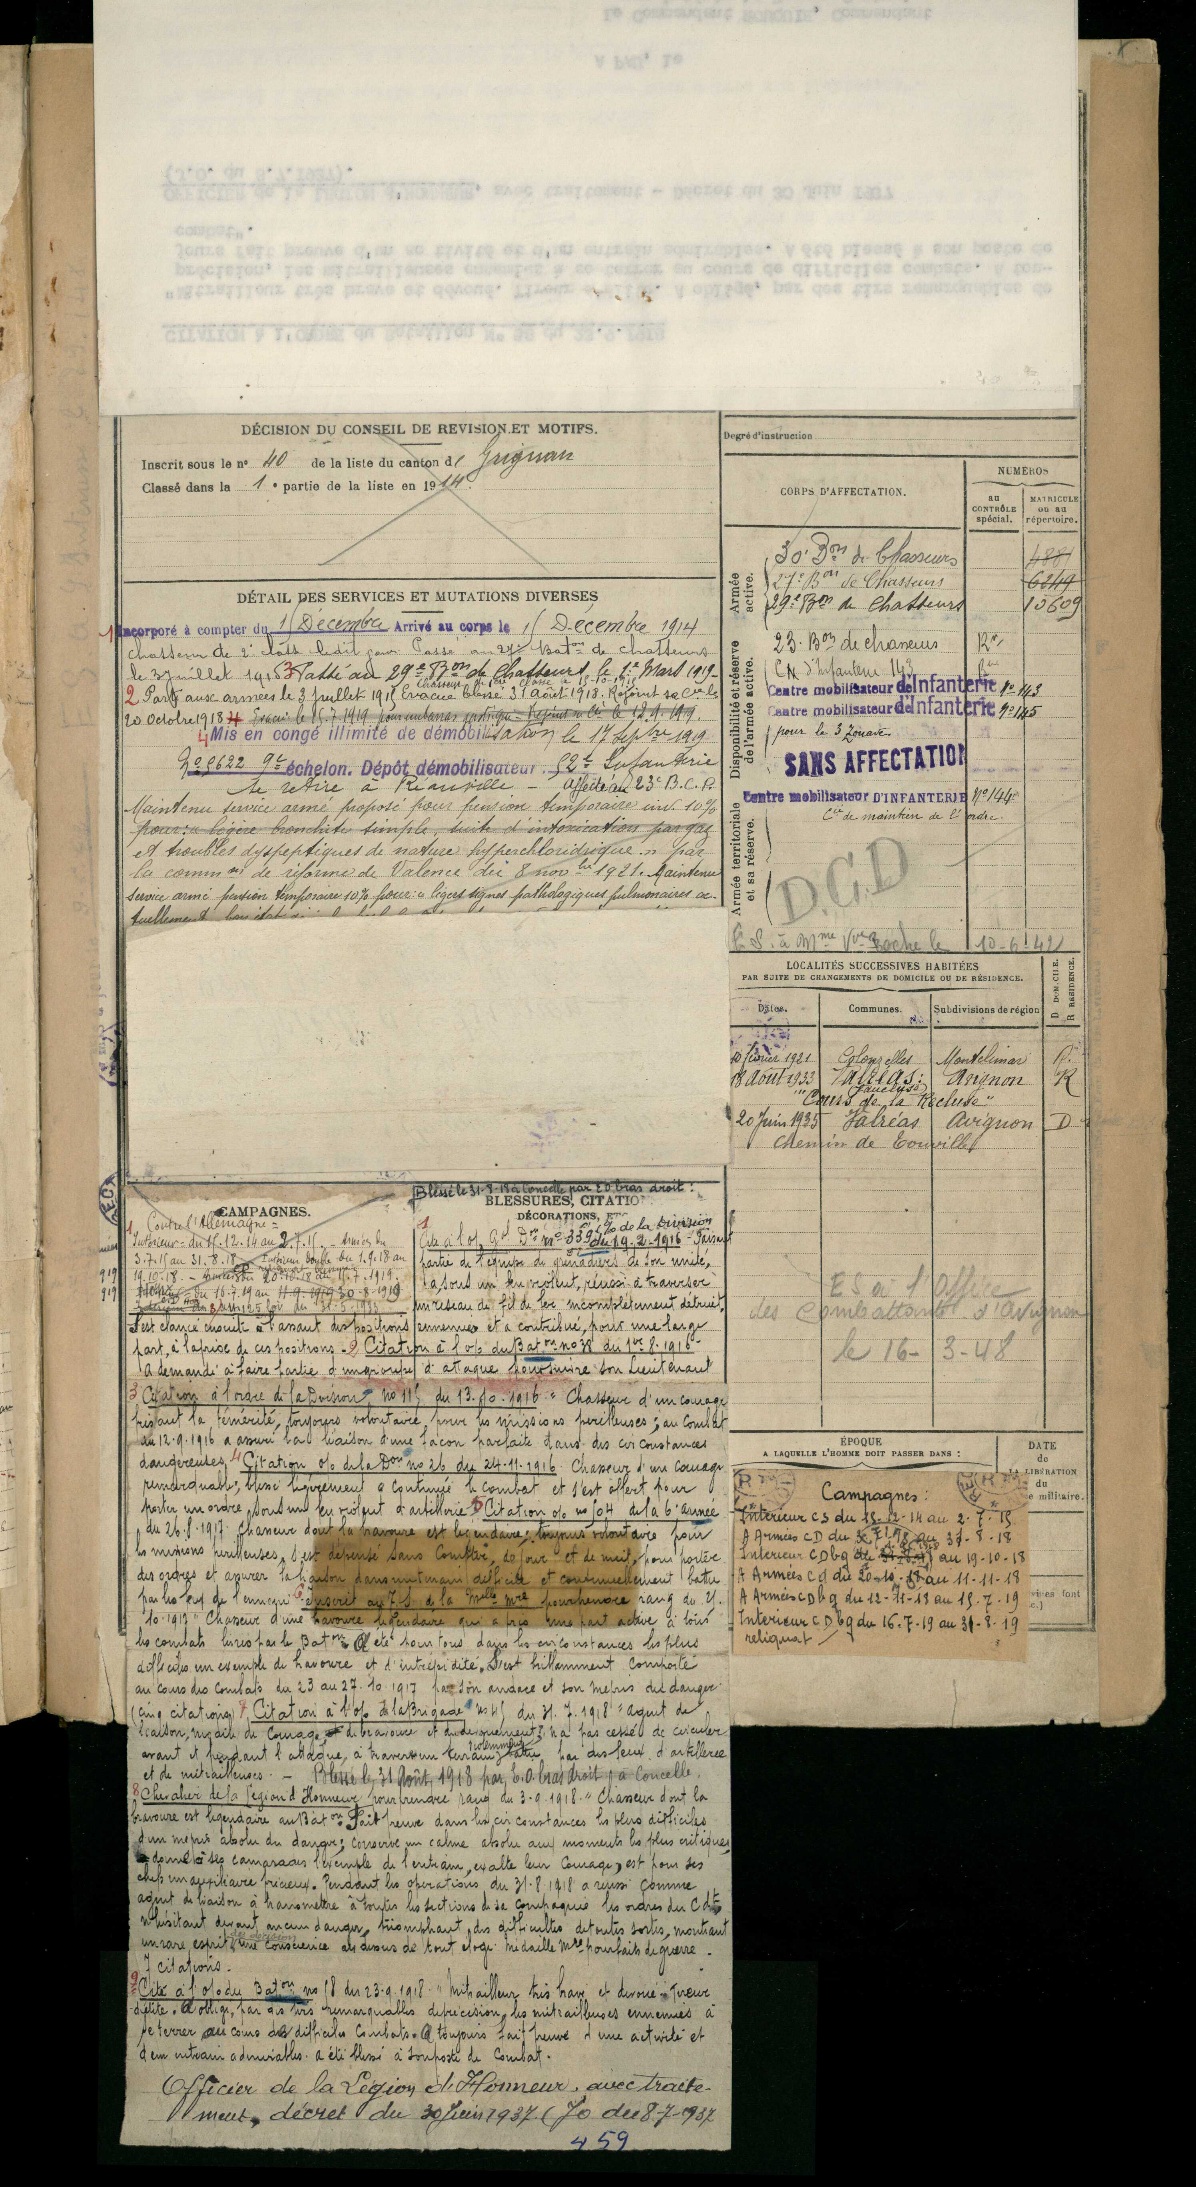 DÉCISION DU CONSEIL DE REVISION ET MOTIFS.
Inscrit sous le nº 40 de la liste du canton de Grignan
Classé dans la 1e partie de la liste en 1914.
DÉTAIL DES SERVICES ET MUTATIONS DIVERSES
Incorporé à compter du 15 Décembre Arrivé au corps le 15 Décembre 1914
chasseur de 2e classe ledit jour. Passé au 27e Baton de chasseurs
le 3 juillet 1915 3 Passé au 29e Bon de Chasseurs le 1er Mars 1919
2 Parti aux armées le 3 juillet 1915 Evacué blessé 31 août 1918. Rejoint sa Cie le
20 octobre 1918 4 Evacué le 15.7.1919
4 Mis en congé illimité de démobilisation le 17 Septbre 1919
No 5622 9e échelon. Dépôt démobilisateur 52e Infanterie
Se retire à Réauville - Affecté au 23e B.C.P.
Maintenu service armé proposé pour pension temporaire inv. 10%
pour: "légère bronchite simple, suite d'intoxication par gaz
et troubles dyspeptiques de nature hyperchlorhydrique" par
la common de réforme de Valence du 8 novbre 1921. Maintenu
service armé pension temporaire 10% pour: "légers signes pathologiques pulmonaires ac-
CAMPAGNES.
Contre l'Allemagne =
Intérieur du 15.12.14 au 2.7.15 - Armées du
3.7.15 au 31.8.18
Blessé le 31-8-18 à Loncelle par E O bras droit :
BLESSURES, CITATIONS
DÉCORATIONS, ETC
1 Cité à l'o/ Gal Don no 339 (o/o de la Division
du 19-2-1916 - Faisant
partie de l'équipe de grenadiers de son unité,
a, sous un feu violent, réussi à traverser
un réseau de fil de fer incomplètement détruit,
S'est élancé ensuite à l'assaut des positions ennemies et a contribué, pour une large
part, à la prise de ces positions - 2 Citation à l'o/o du Baton no 38 du 1er 8-1916 -
A demandé à faire partie d'un groupe d'attaque pour suivre son Lieutenant
3 Citation à l'ordre de la Division no 115 du 13.10.1916 " Chasseur d'un courage
frisant la témérité, toujours volontaire pour les missions périlleuses ; au combat
du 12-9-1916 a assuré la liaison d'une façon parfaite dans des circonstances
dangereuses 4 Citation o/o de la Don no 26 du 24-11-1916 Chasseur d'un courage
remarquable, blessé légèrement a continué le combat et s'est offert pour
porter un ordre sous un feu violent d'artillerie 5 Citation o/o no 504 de la 6e armée
du 26.8.1917. Chasseur dont la bravoure est légendaire ; toujours volontaire pour
les missions périlleuses, s'est dépensé sans compter, de jour et de nuit, pour porter
des ordres et assurer la liaison dans un terrain difficile et continuellement battu
par les feux de l'ennemi 6 Inscrit au T.S. de la Mlle Mre pour prendre rang du 25.
10.1917 " Chasseur d'une bravoure légendaire qui a pris une part active à tous
les combats livrés par le Baton. A été pour tous dans les circonstances les plus
difficiles un exemple de bravoure et d'intrépidité. S'est brillamment comporté
au cours des combats du 23 au 27.10.1917 par son audace et son mépris du danger.
(cinq citations) 7 Citation à l'o/o de la Brigade no 45 du 31.7.1918 " agent de
liaison, modèle de courage de bravoure et de dévouement ; n'a pas cessé de circuler
avant et pendant l'attaque, à travers un terrain violemment battu par des feux d'artillerie
et de mitrailleuses. - Blessé le 31 Août 1918 par E.O. bras droit, à Loncelle.
8 Chevalier de la Légion d'Honneur pour prendre rang du 3-9-1918. " Chasseur dont la
bravoure est légendaire au Baton. Fait preuve dans les circonstances les plus difficiles
d'un mépris absolu du danger ; conserve un calme absolu aux moments les plus critiques,
donne à ses camarades l'exemple de l'entrain, exalte leur courage, est pour ses
chefs un auxiliaire précieux. Pendant les opérations du 31-8-1918 a réussi comme
agent de liaison à transmettre à toutes les sections de sa compagnie les ordres du Cdt
n'hésitant devant aucun danger, triomphant des difficultés de toutes sortes, montrant
un rare esprit du devoir une conscience au dessus de tout éloge. Médaille Mre pour faits de guerre.
7 citations.
9 Cité à l'o/o du Baton no 58 du 23-9-1918. " Mitrailleur très brave et dévoué. Tireur
d'élite. A obligé, par des tirs remarquables de précision, les mitrailleuses ennemies à
se terrer au cours de difficiles combats. A toujours fait preuve d'une activité et
d'un entrain admirables. a été blessé à son poste de combat.
Officier de la Légion d'Honneur, avec traite-
ment, décret du 30 Juin 1937 (JO du 8-7-1937
459
Degré d'instruction
CORPS D'AFFECTATION.
NUMÉROS
au CONTRÔLE spécial.
MATRICULE ou au répertoire.
Armée active.
30e Bon de Chasseurs 4881
27e Bon de Chasseurs 6249
29e Bon de Chasseurs 10609
Disponibilité et réserve de l'armée active.
23e Bon de chasseurs
CM d'Infanterie 143
Centre mobilisateur d'Infanterie No 143
Centre mobilisateur d'Infanterie No 145
pour le 3 Zouaves
SANS AFFECTATION
Armée territoriale et sa réserve.
Centre mobilisateur D'INFANTERIE No 144
Cie de maintien de l'ordre.
D.G.D
E S. à Mme Vve Roche le 10-6-42
LOCALITÉS SUCCESSIVES HABITÉES
PAR SUITE DE CHANGEMENTS DE DOMICILE OU DE RÉSIDENCE.
Dates. Communes. Subdivisions de région D DOMICILE. R RÉSIDENCE.
10 février 1921 Colonzelles Montélimar R.
18 Août 1933 Valréas: Avignon R
Vaucluse
"Cours de la Recluse"
20 Juin 1935 Valréas Avignon D
chemin de Tourville
ES à l'Office
des Combattants d'Avignon
le 16-3-48
ÉPOQUE
A LAQUELLE L'HOMME DOIT PASSER DANS :
DATE
de
LA LIBÉRATION
du
service militaire.
Campagnes :
Intérieur CS du 15-12-14 au 2-7-15
A Armées CD du 3-7-15 au 31-8-18
Intérieur CDbg du au 19-10-18
A Armées Cd du 20-10-18 au 11-11-18
A Armées CDbg du 12-11-18 au 15-7-19
Intérieur CDbg du 16-7-19 au 31-8-19
reliquat